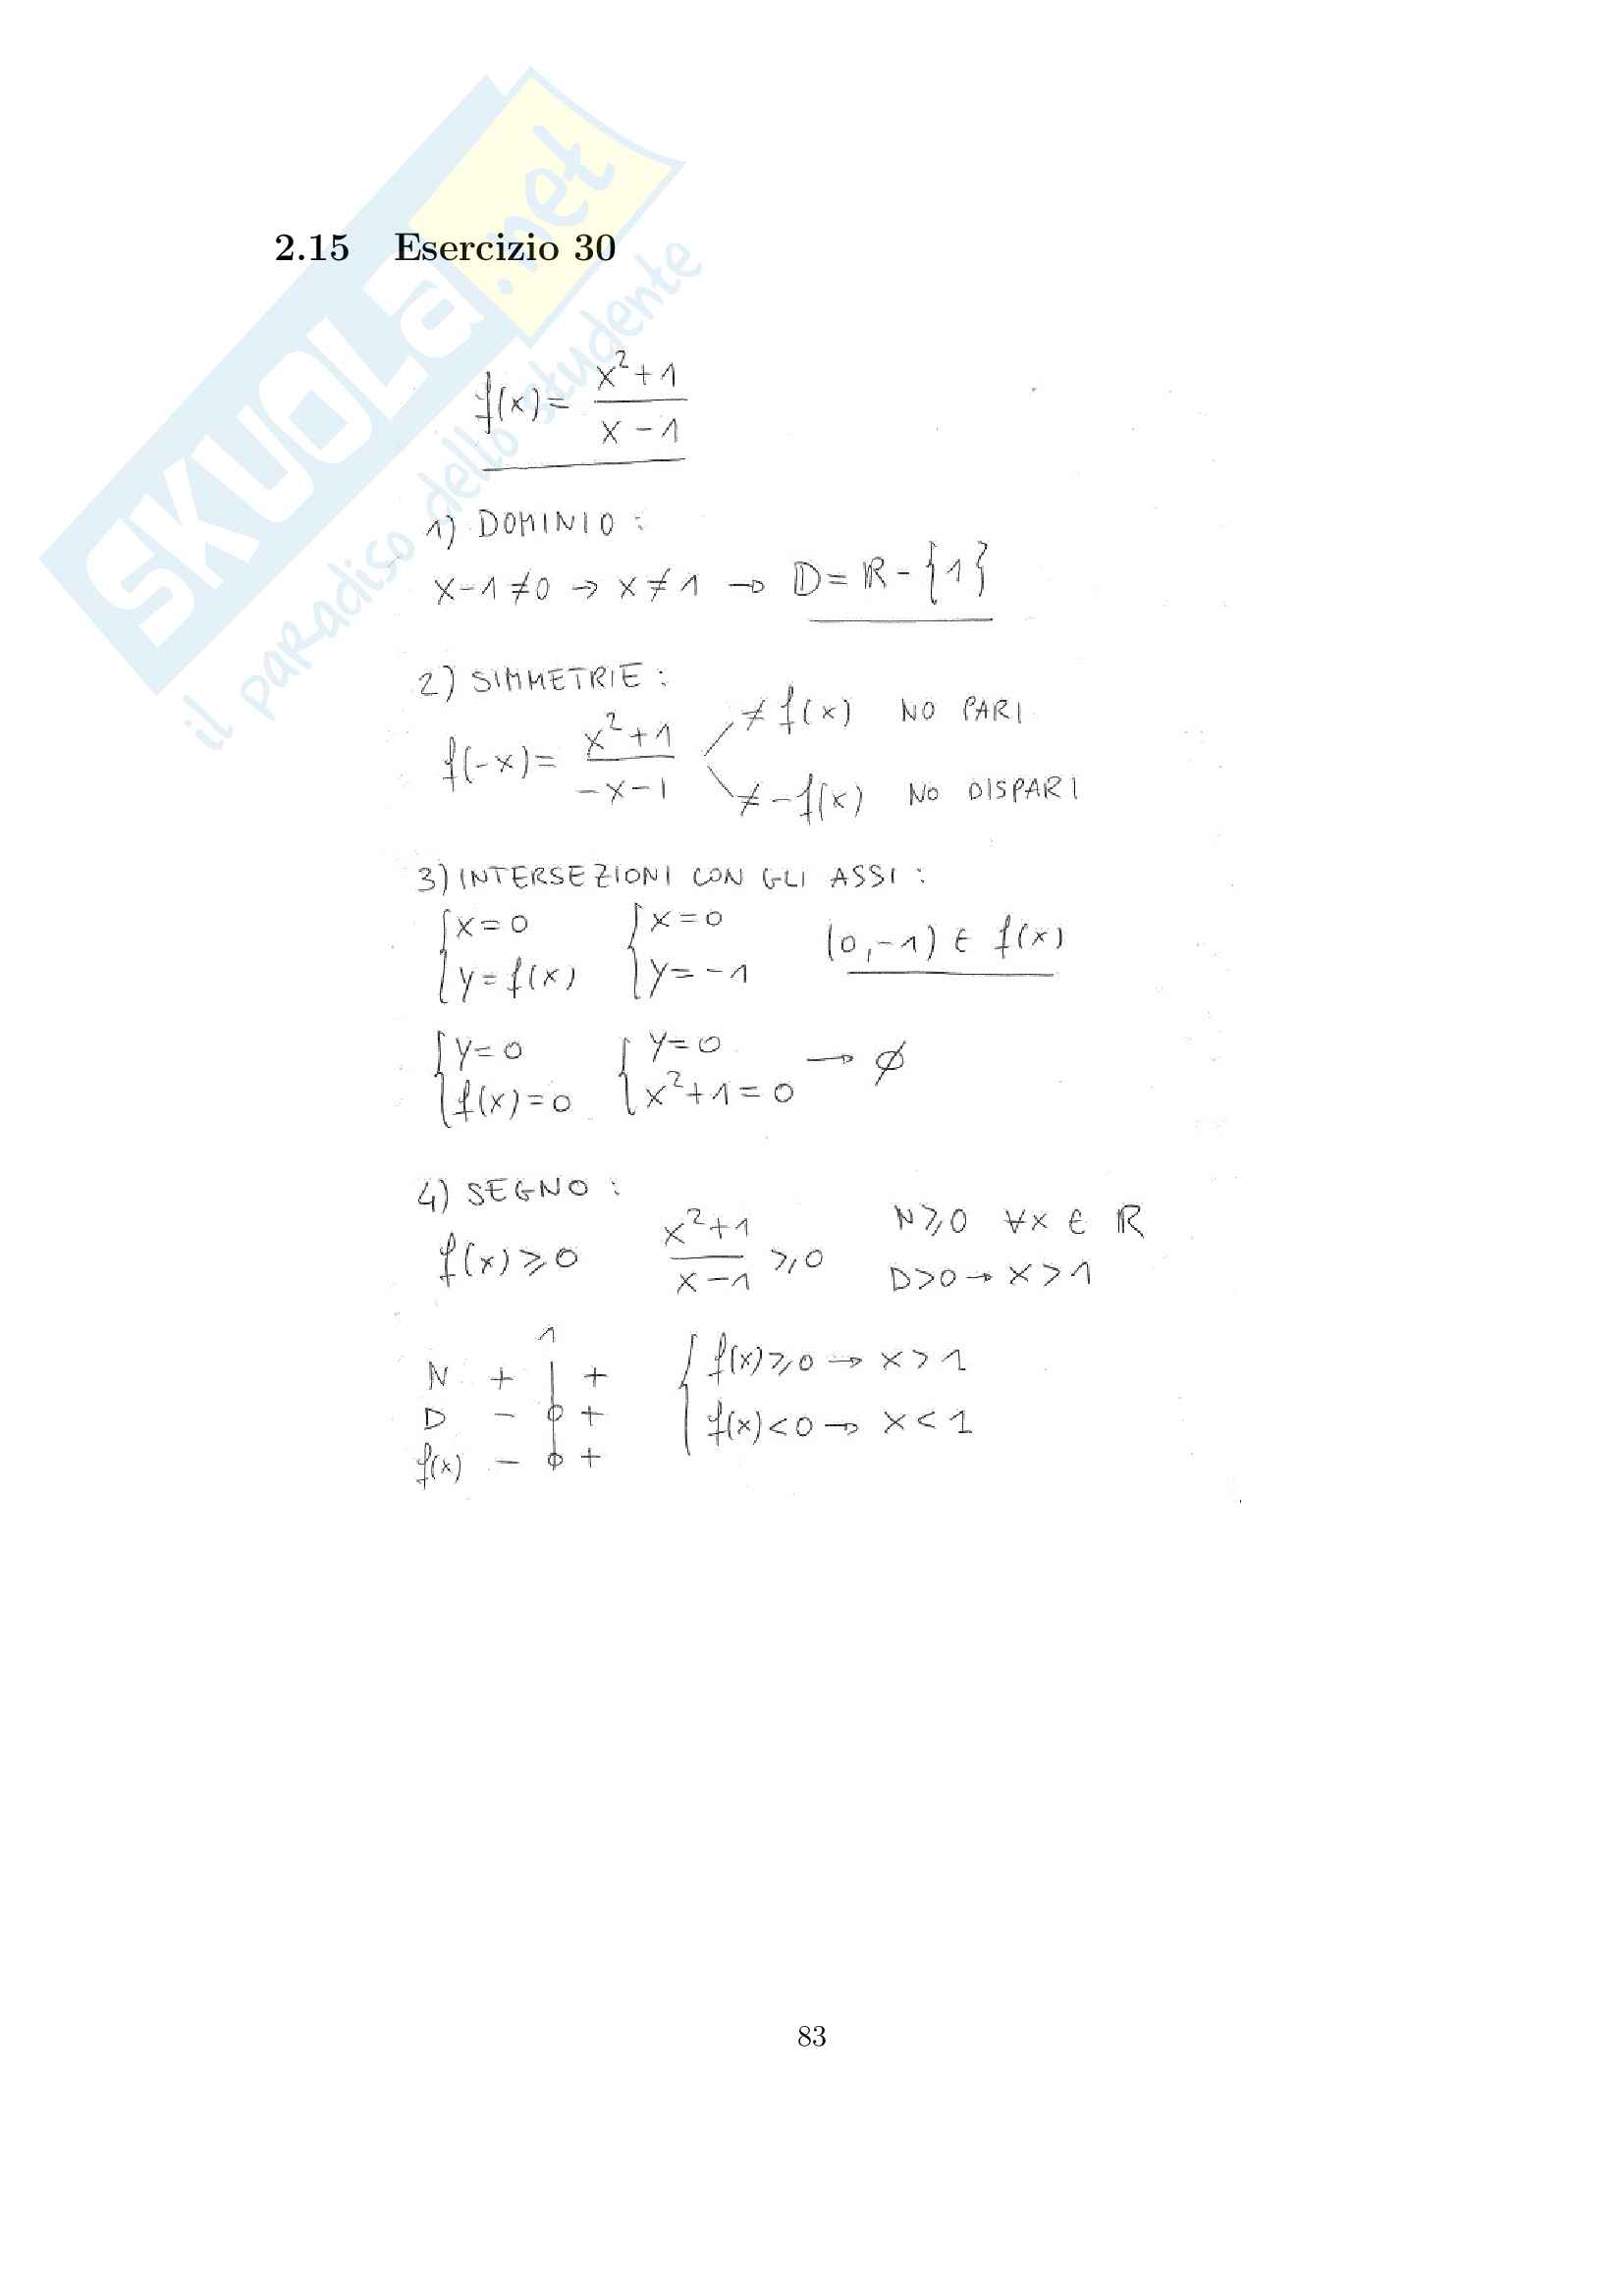 SKUOLA.net
il paradiso dello studente
2.15 Esercizio 30
f(x) = (x²+1)/(x-1)
1) DOMINIO :
x-1≠0 → x≠1 → D=ℝ-{1}
2) SIMMETRIE :
f(-x) = (x²+1)/(-x-1)
≠ f(x) NO PARI
≠ -f(x) NO DISPARI
3) INTERSEZIONI CON GLI ASSI :
{x=0 {x=0
{y=f(x) {y=-1
(0,-1) ∈ f(x)
{y=0 {y=0
{f(x)=0 {x²+1=0
→ ∅
4) SEGNO :
f(x)≥0 (x²+1)/(x-1) ≥0
N≥0 ∀x ∈ ℝ
D>0 → x>1
1
N + | +
D - 0 +
f(x) - 0 +
{f(x)≥0 → x>1
{f(x)<0 → x<1
83